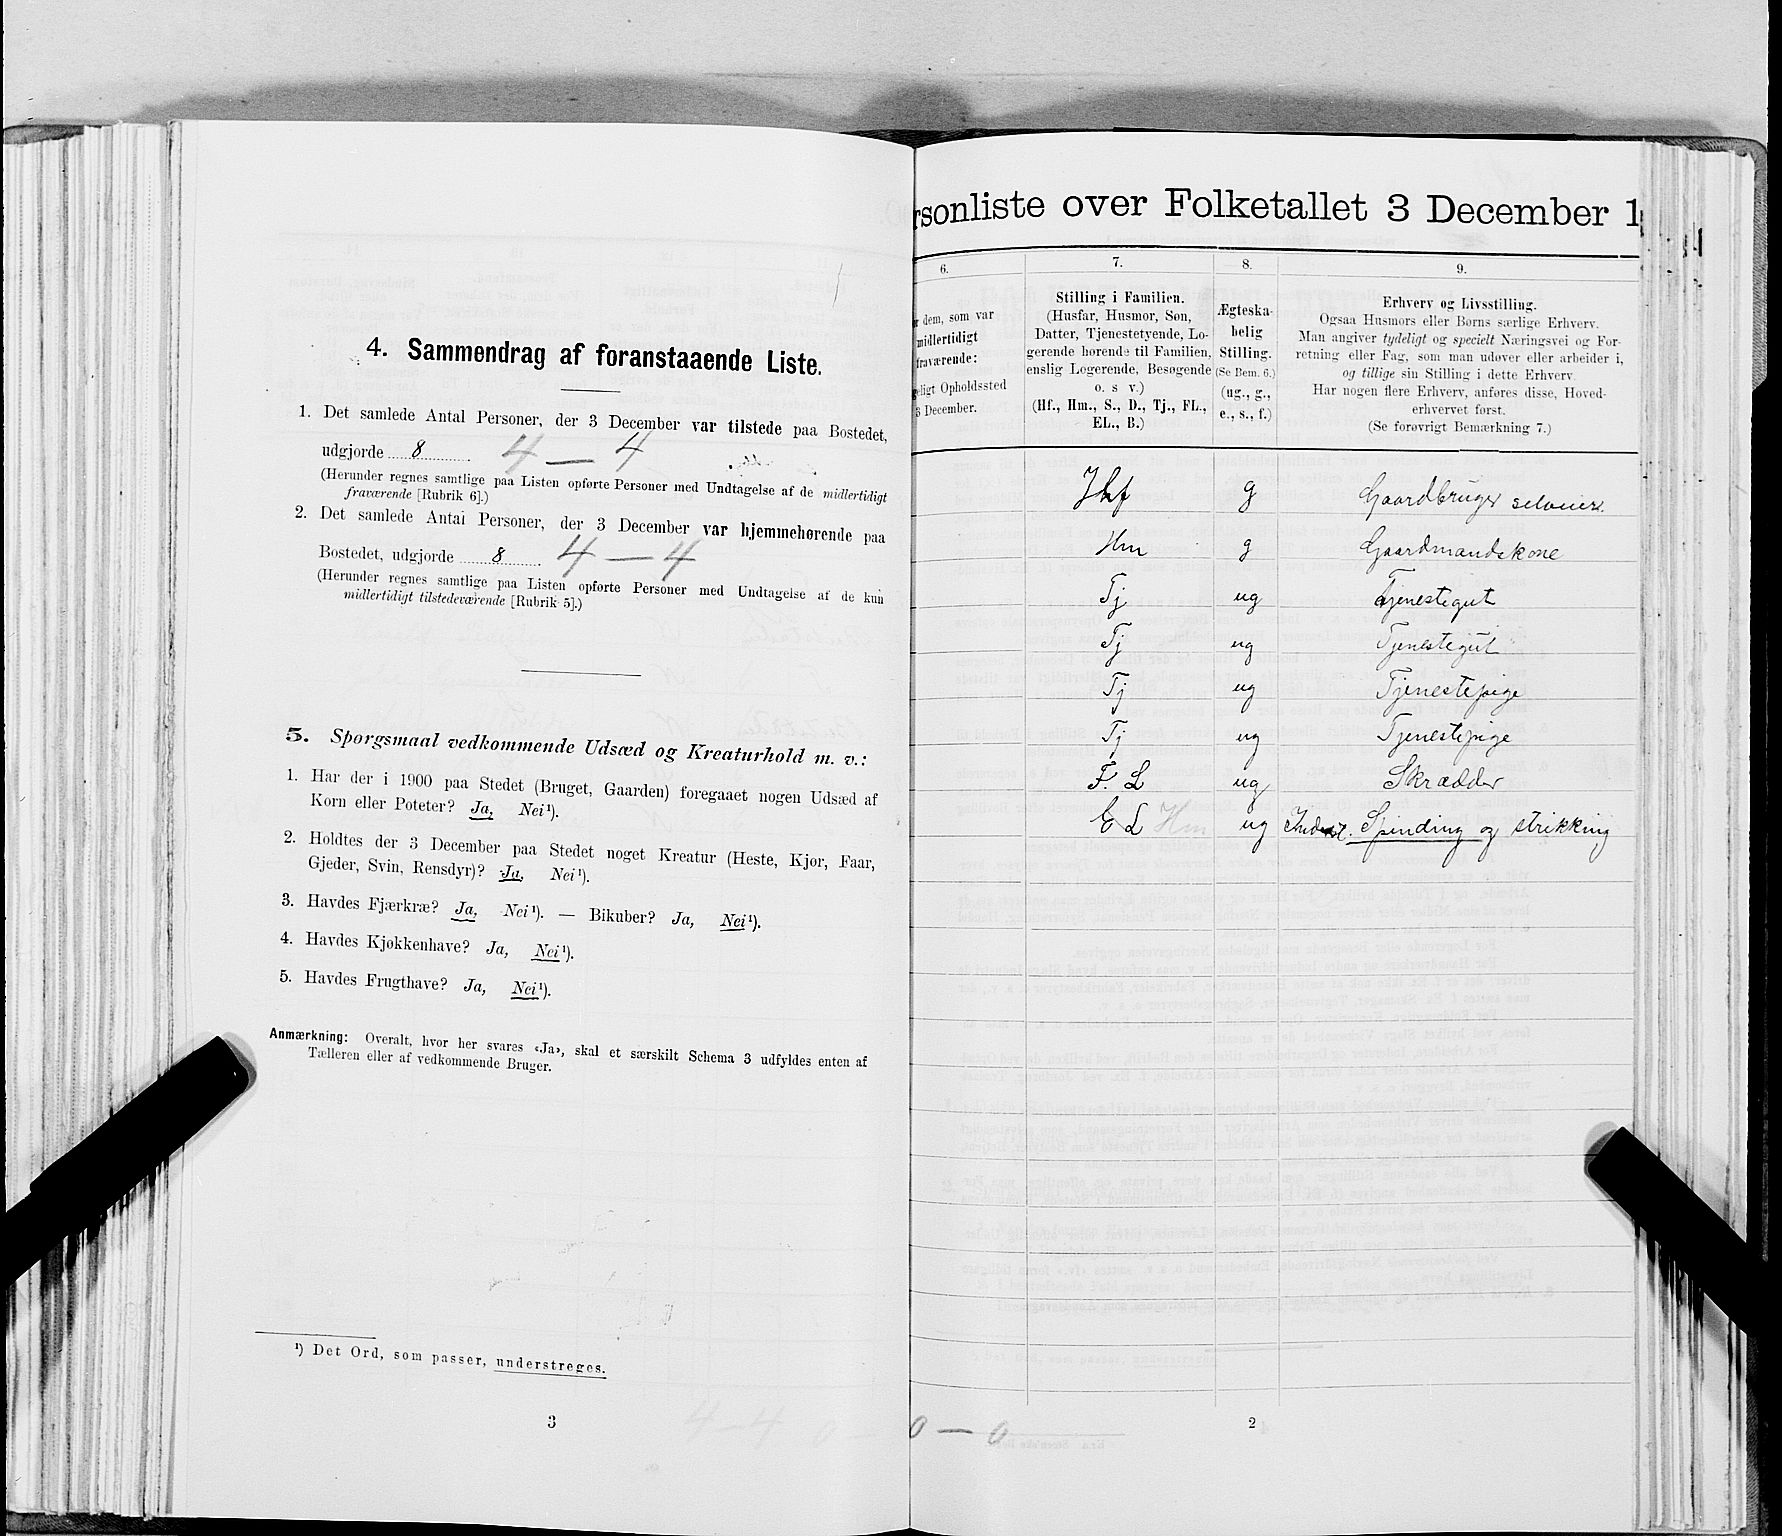 4. Sammendrag af foranstaaende Liste.
1. Det samlede Antal Personer, der 3 December var tilstede paa Bostedet,
udgjorde 8 4 — 4
(Herunder regnes samtlige paa Listen opførte Personer med Undtagelse af de midlertidigt
fraværende [Rubrik 6].)
2. Det samlede Antal Personer, der 3 December var hjemmehørende paa
Bostedet, udgjorde 8 4 — 4
(Herunder regnes samtlige paa Listen opførte Personer med Undtagelse af de kun
midlertidigt tilstedeværende [Rubrik 5].)
5. Spørgsmaal vedkommende Udsæd og Kreaturhold m. v.:
1. Har der i 1900 paa Stedet (Bruget, Gaarden) foregaaet nogen Udsæd af
Korn eller Poteter? Ja, Nei¹).
2. Holdtes der 3 December paa Stedet noget Kreatur (Heste, Kjør, Faar,
Gjeder, Svin, Rensdyr)? Ja, Nei¹).
3. Havdes Fjærkræ? Ja, Nei¹). — Bikuber? Ja, Nei¹).
4. Havdes Kjøkkenhave? Ja, Nei¹).
5. Havdes Frugthave? Ja, Nei¹).
Anmærkning: Overalt, hvor her svares «Ja», skal et særskilt Schema 3 udfyldes enten af
Tælleren eller af vedkommende Bruger.
¹) Det Ord, som passer, understreges.
3
4 — 4 0 —
rsonliste over Folketallet 3 December 1
6.
r dem, som var
midlertidigt
fraværende:
geligt Opholdssted
3 December.
7.
Stilling i Familien.
(Husfar, Husmor, Søn,
Datter, Tjenestetyende, Lo-
gerende hørende til Familien,
enslig Logerende, Besøgende
o. s v.)
(Hf., Hm., S., D., Tj., FL.,
EL., B.)
8.
Ægteska-
belig
Stilling.
(Se Bem. 6.)
(ug., g.,
e., s., f.)
9.
Erhverv og Livsstilling.
Ogsaa Husmors eller Børns særlige Erhverv.
Man angiver tydeligt og specielt Næringsvei og For-
retning eller Fag, som man udøver eller arbeider i,
og tillige sin Stilling i dette Erhverv.
Har nogen flere Erhverv, anføres disse, Hoved-
erhvervet først.
(Se forøvrigt Bemærkning 7.)
Hf g Gaardbruger selveier.
Hm g Gaardmandskone
Tj ug Tjenestegut
Tj ug Tjenestegut
Tj ug Tjenestepige
Tj ug Tjenestepige
F. L ug Skrædder
E L Hm ug Spinding og strikking
0 — 0
2